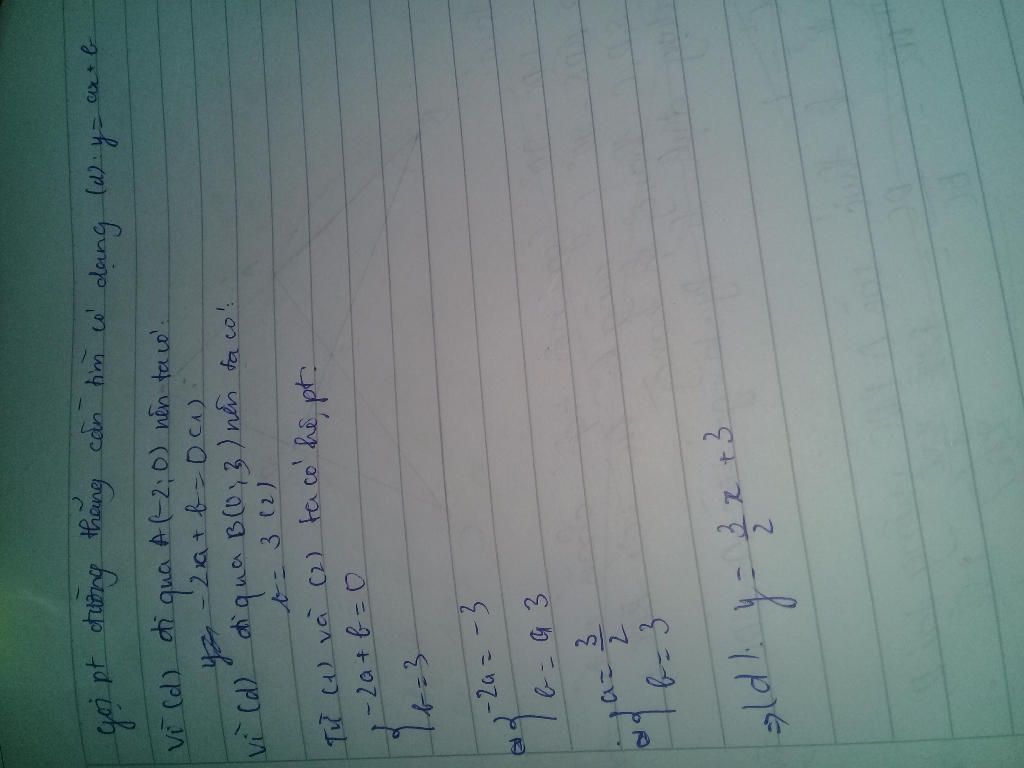 Gọi pt đường thẳng cần tìm có dạng (d): y = ax + b
Vì (d) đi qua A(-2; 0) nên ta có:
-2a + b = 0 (1)
Vì (d) đi qua B(0; 3) nên ta có:
b = 3 (2)
Từ (1) và (2) ta có hệ pt:
{ -2a + b = 0
b = 3
⇔ { -2a = -3
b = 3
⇔ { a = 3/2
b = 3
⇒ (d): y = 3/2 x + 3